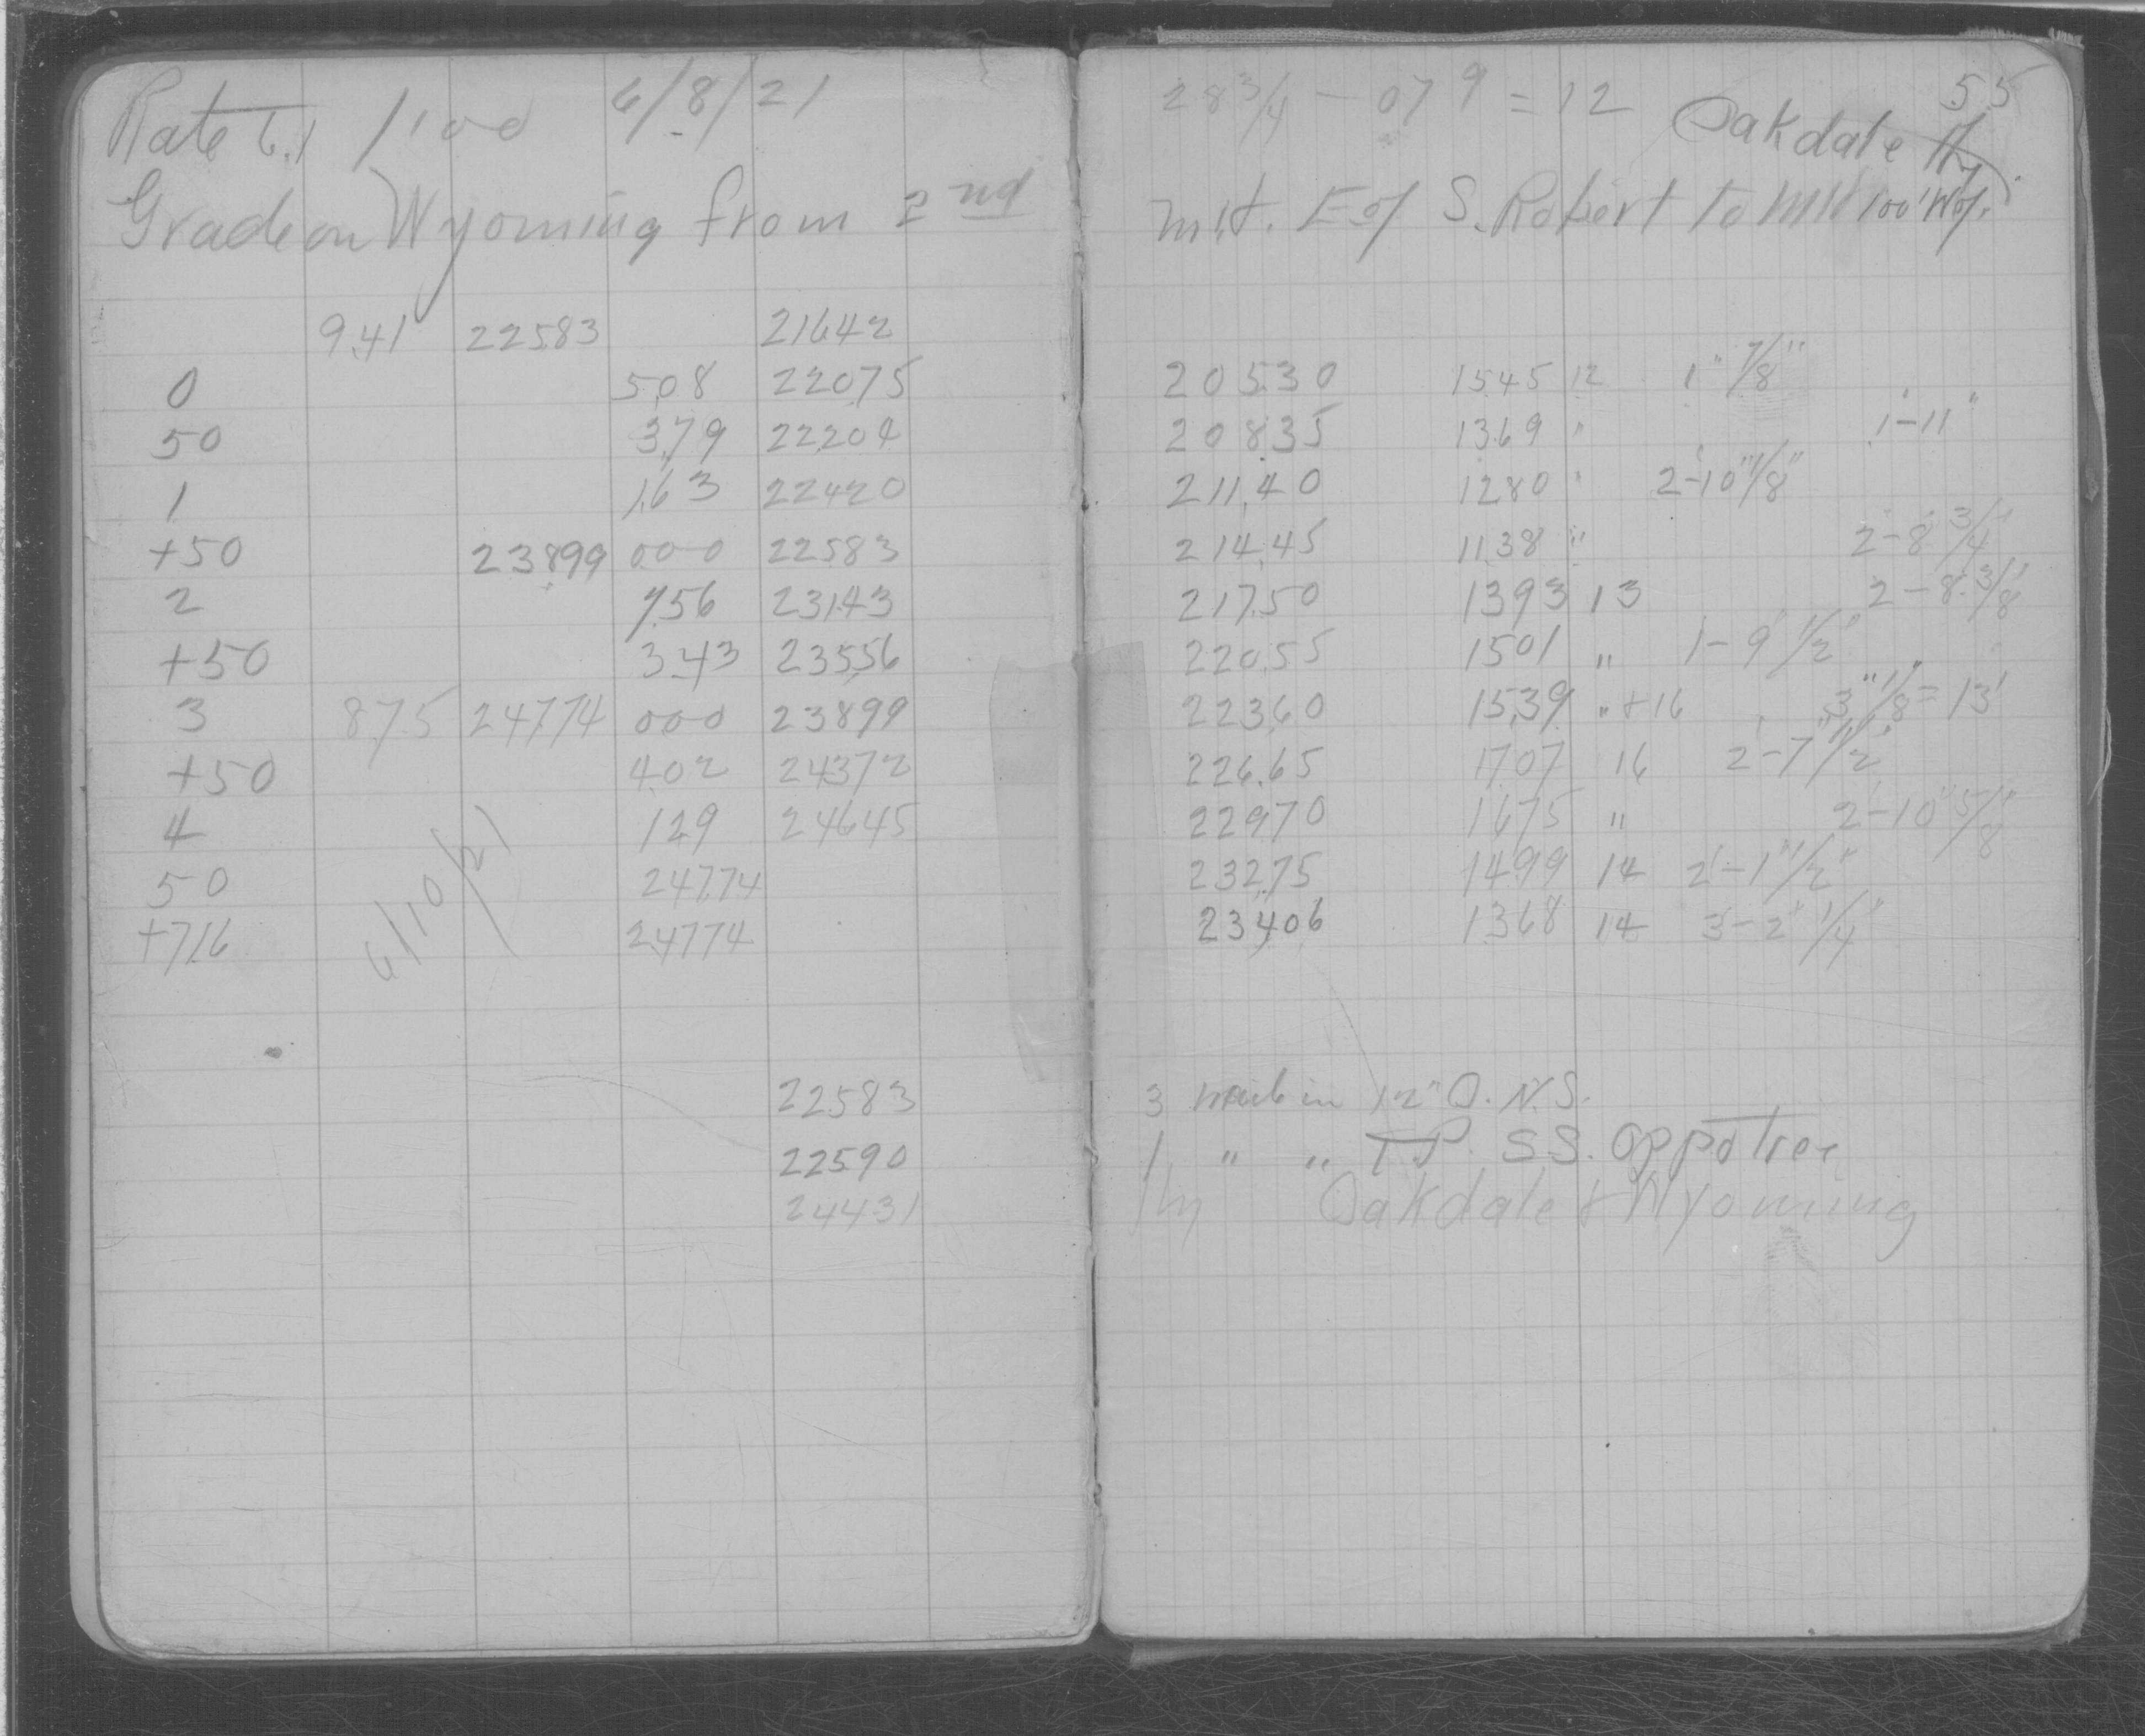 Rate 6.1 /100 6/8/21
Grade on Wyoming from 2nd
9.41 225.83 216.42
0 5.08 220.75
50 3.79 222.04
1 1.63 224.20
+50 238.99 0.00 225.83
2 7.56 231.43
+50 3.43 235.56
3 8.75 247.74 0.00 238.99
+50 4.02 243.72
4 1.29 246.45
50 247.74
+71.6 247.74
6/10/21
225.83
225.90
244.31
28 3/4 - 079 = 12 55
Oakdale
M.H. E of S. Robert to MH 100' W of
205.30 15.45 12 1" 7/8"
208.35 13.69 " 1'-11"
211.40 12.80 " 2'-10" 1/8"
214.45 11.38 " 2'-8" 3/4"
217.50 13.93 13 2'-8" 3/8"
220.55 15.01 " 1'-9" 1/2"
223.60 15.39 " +16 3" 1/8" = 13'
226.65 17.07 16 2'-7" 1/2"
229.70 16.75 " 2'-10" 5/8"
232.75 14.99 14 2'-1" 1/2"
234.06 13.68 14 3'-2" 1/4"
3 in 12" O. N.S.
1 " " T.P. S.S. opp tree
Oakdale & Wyoming